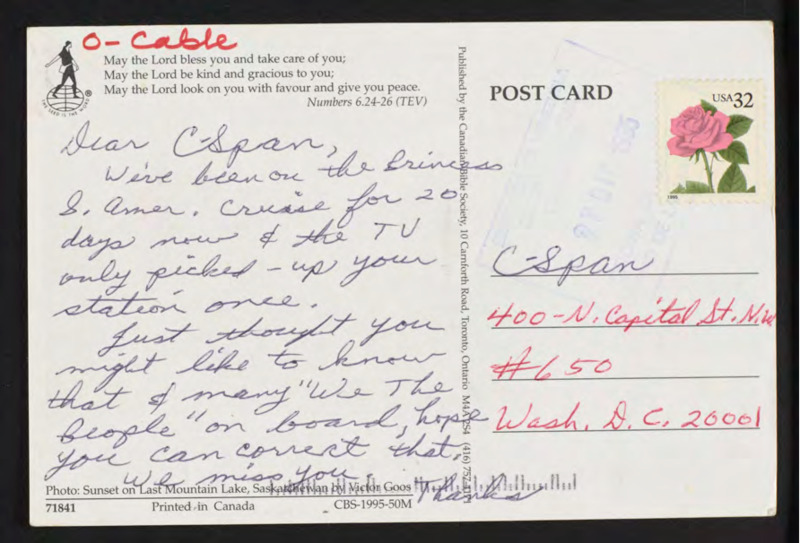 O- Cable
May the Lord bless you and take care of you;
May the Lord be kind and gracious to you;
May the Lord look on you with favour and give you peace.
Numbers 6.24-26 (TEV)
Dear CSpan,
We've been on the Princess
S. Amer. Cruise for 20
days now & the TV
only picked-up your
station once.
Just thought you
might like to know
that & many "We The
People" on board, hope
you can correct that.
We miss you.
Thanks
Photo: Sunset on Last Mountain Lake, Saskatchewan by Victor Goos
71841 Printed in Canada CBS-1995-50M
Published by the Canadian Bible Society, 10 Carnforth Road, Toronto, Ontario M4A 2S4 (416)
POST CARD
USA 32
C-Span
400-N. Capital St. N.W
#650
Wash. D.C. 20001